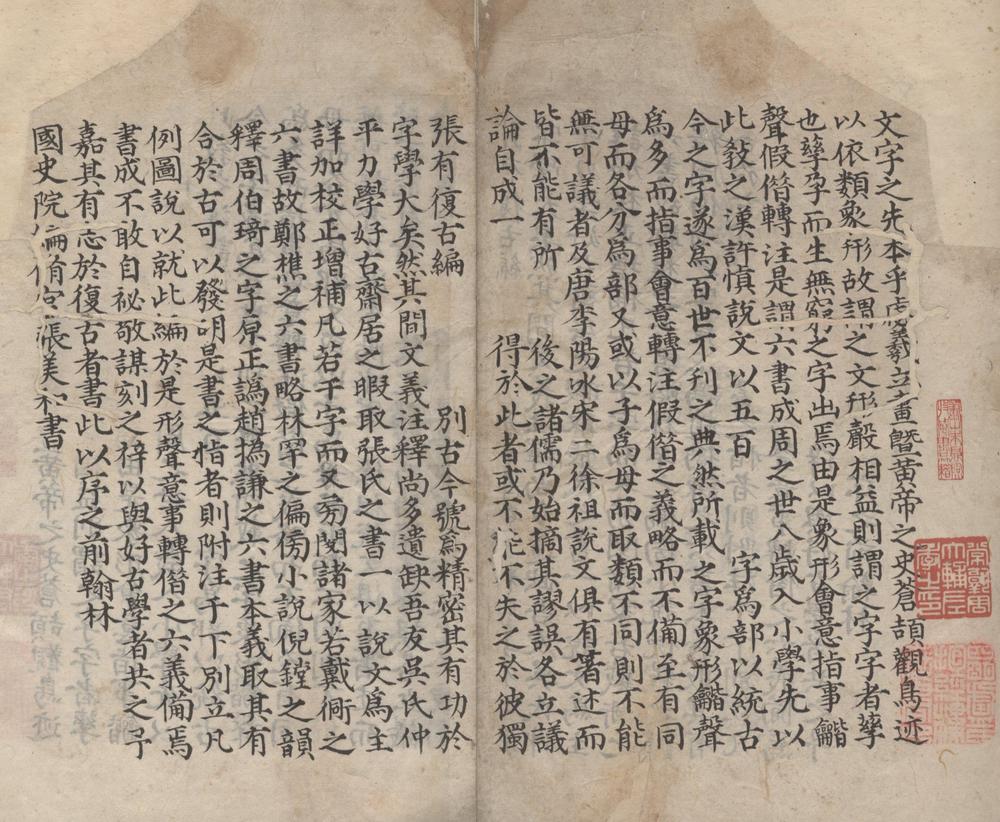 文字之先本乎虙羲立畫暨黄帝之史蒼頡觀鳥迹
以依類象形故謂之文形聲相益則謂之字字者孳
也孳孕而生無窮之字出焉由是象形會意指事龤
聲假偕轉注是謂六書成周之世八歲入小學先以
此敎之漢許慎說文以五百 字爲部以統古
今之字遂爲百世不刊之典然所載之字象形龤聲
爲多而指事會意轉注假偕之義略而不備至有同
母而各分爲部又或以子爲母而取類不同則不能
無可議者及唐李陽冰宋二徐祖說文俱有著述而
皆不能有所 後之諸儒乃始摘其謬誤各立議
論自成一 得於此者或不能不失之於彼獨
張有復古編 別古今號爲精密其有功於
字學大矣然其間文義注釋尚多遺缺吾友吳氏仲
平力學好古齋居之暇取張氏之書一以說文爲主
詳加校正增補凡若干字而又旁閱諸家若戴侗之
六書故鄭樵之六書略林罕之偏傍小說倪鏜之韻
釋周伯琦之字原正譌趙撝謙之六書本義取其有
合於古可以發明是書之恉者則附注于下別立凡
例圖說以就此編於是形聲意事轉偕之六義備焉
書成不敢自祕敬謀刻之梓以與好古學者共之予
嘉其有志於復古者書此以序之前翰林
國史院編脩官張美和書